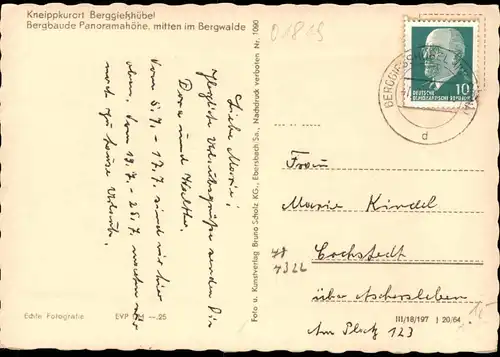 Kneippkurort Berggießhübel
Bergbaude Panoramahöhe, mitten im Bergwalde
01819
DEUTSCHE
DEMOKRATISCHE REPUBLIK
10
d
Liebe Marie!
Herzliche Urlaubsgrüße senden Dir
Dora und Walther.
Vom 5.7. - 17.7. sind wir hier
oben. Vom 18.7. - 25.7. machen wir
noch zu Hause Urlaub.
Foto u. Kunstverlag Bruno Scholz KG., Ebersbach/Sa., Nachdruck verboten Nr. 1090
Frau
Marie Kindel
Cochstedt
über Aschersleben
Am Platz 123
Echte Fotografie EVP —.25
III/18/197 J 20/64